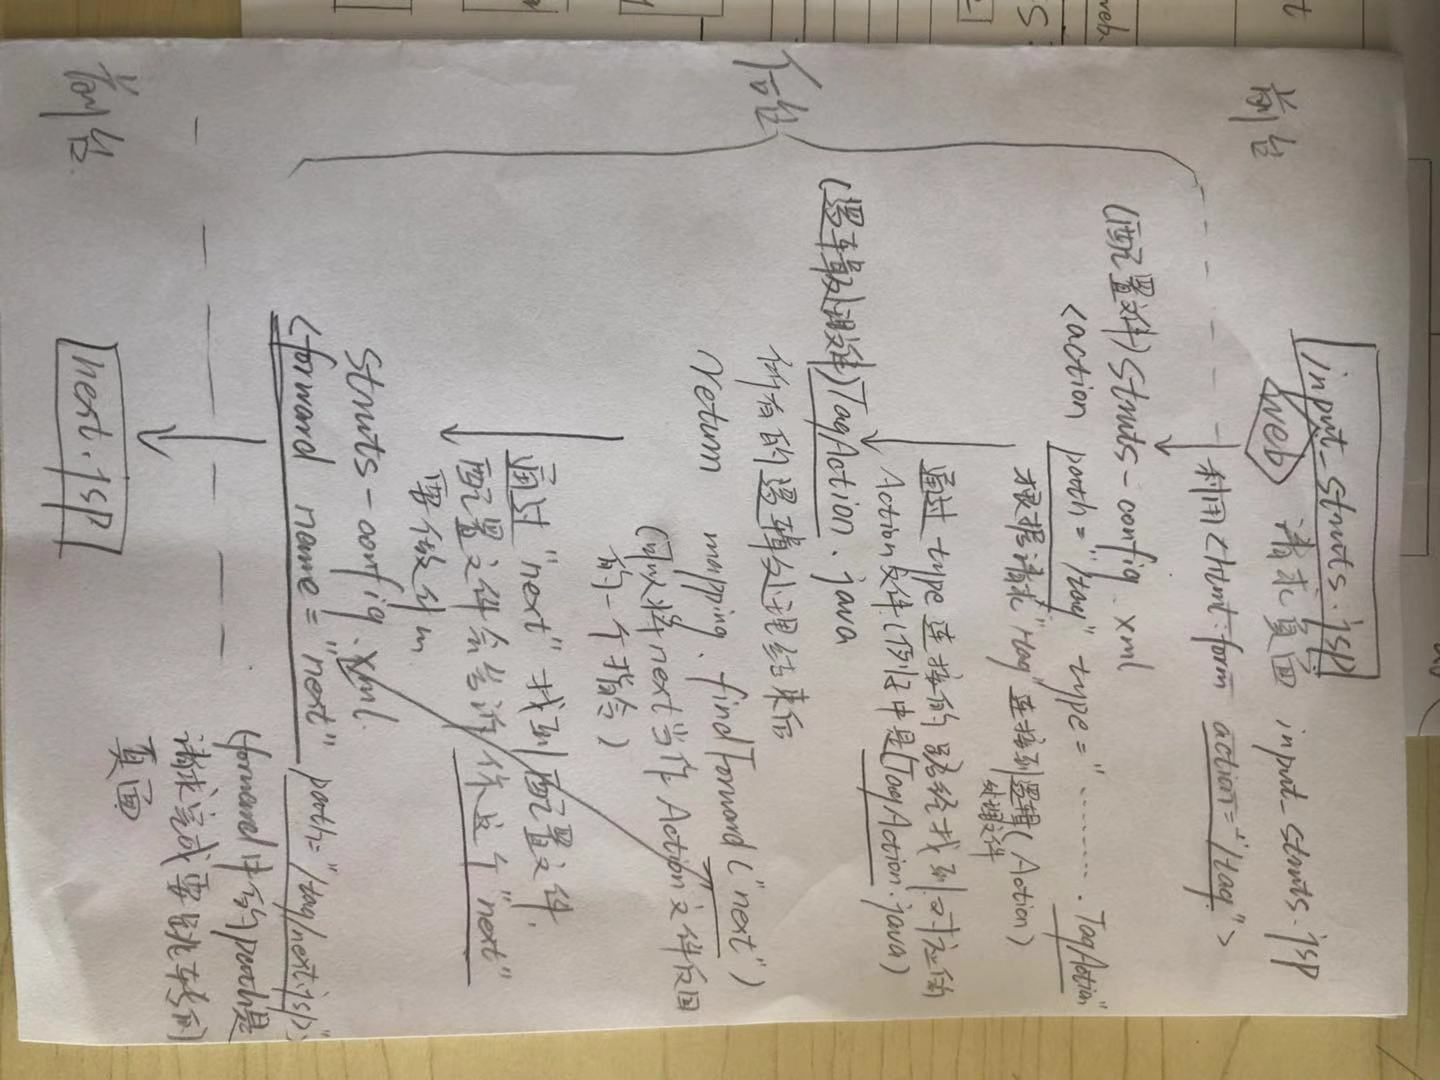 前台
input-struts.jsp
web 请求页面 input-struts.jsp
利用<html:form action="/tag">
后台
(配置文件) struts-config.xml
<action path="/tag" type="........TagAction"
根据请求"tag"连接到逻辑(Action)
处理文件
通过type连接的路径找到对应的
Action文件(例子中是TagAction.java)
(逻辑处理文件)TagAction.java
所有的逻辑处理结束后
return mapping.findForward("next")
(可以将next当作Action文件返回
的一个指令)
通过"next"找到配置文件,
配置文件会告诉你这个"next"
要做到
struts-config.xml
<forward name="next" path="/tag/next.jsp>"
forward中的path是
请求完成要跳转的
页面
前台
next.jsp